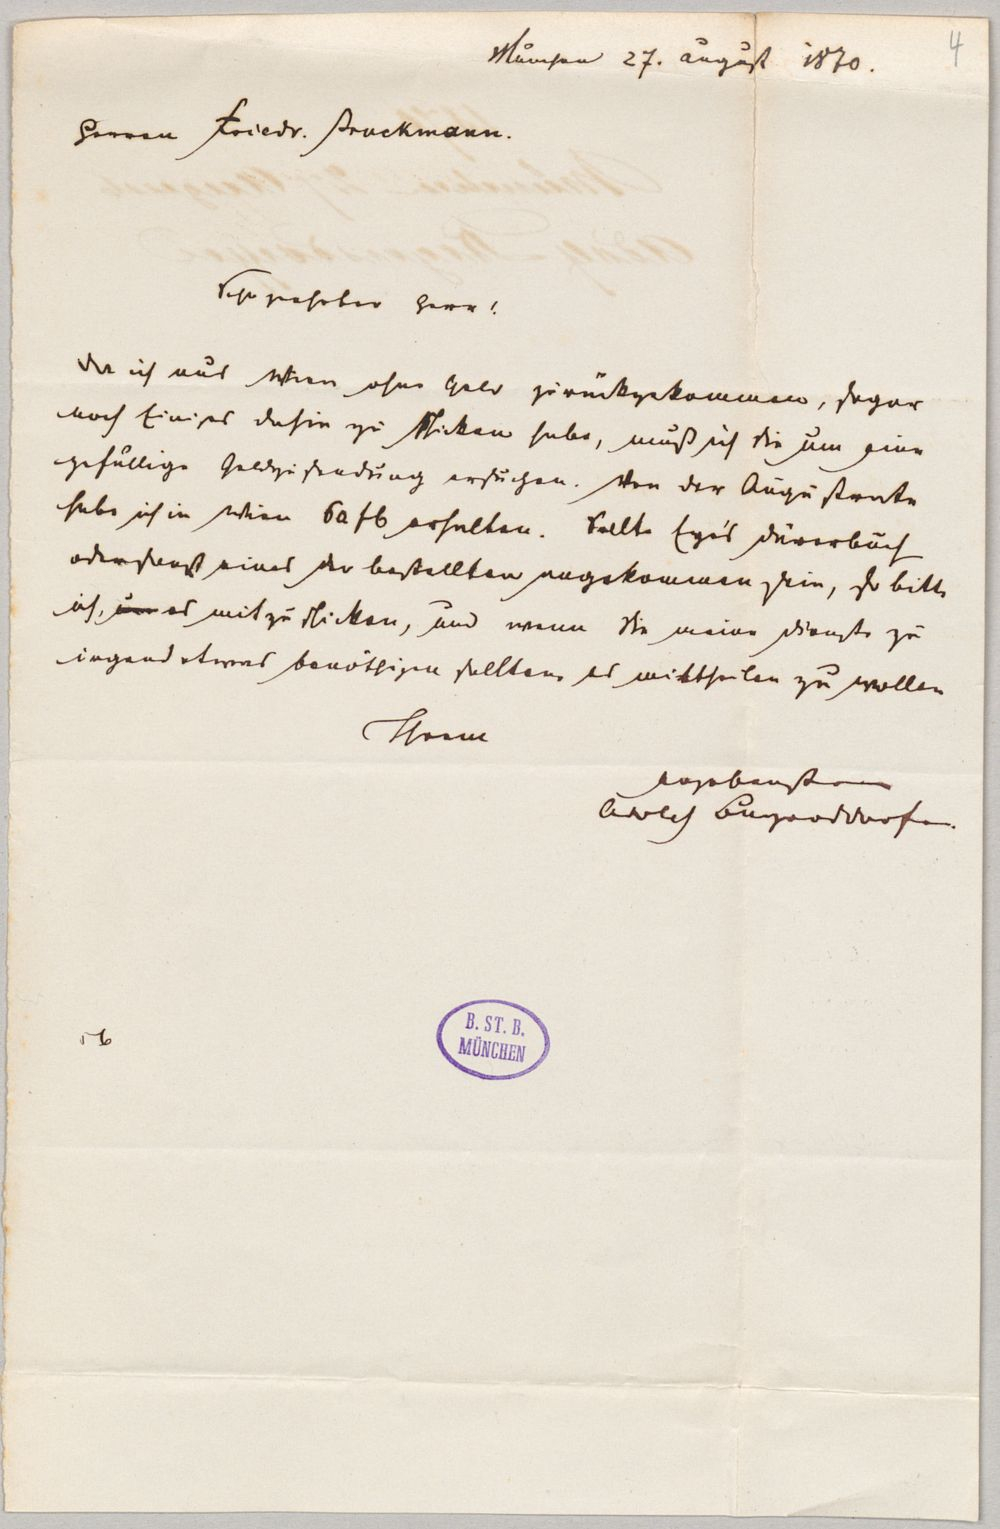 4
München 27. August 1870.
Herren Friedr. Bruckmann.
Sehr geehrter Herr!
Da ich aus Wien ohne Geld zurückgekommen, sogar
noch Einiges dahin zu schicken habe, muß ich Sie um eine
gefällige Geldzusendung ersuchen. Von der Augustrate
habe ich in Wien 60 fl erhalten. Sollte Eye's Dürerbuch
oder sonst eines der bestellten angekommen sein, so bitte
ich, um es mitzuschicken, und wenn Sie meine Dienste zu
irgend etwas benöthigen sollten es mittheilen zu wollen
Ihrem
ergebensten
Adolf
B. ST. B.
MÜNCHEN